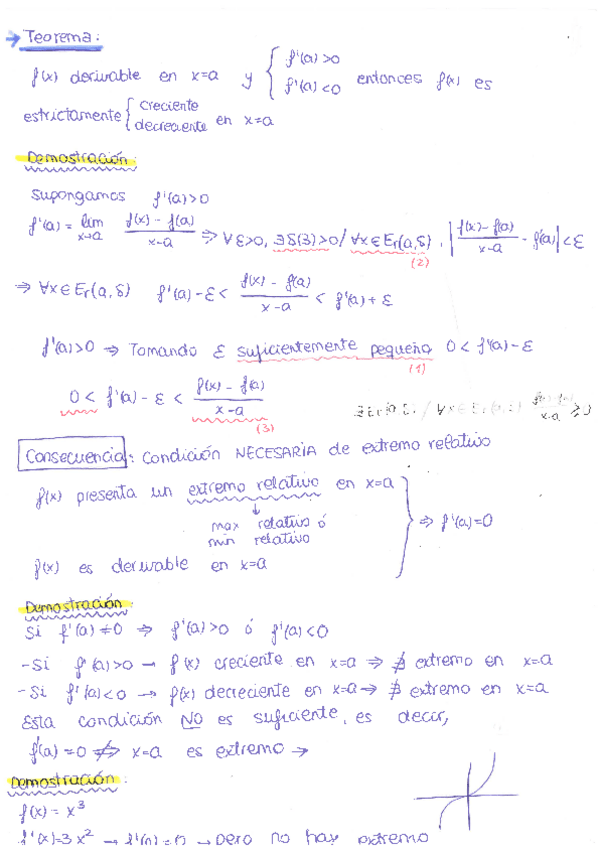 → Teorema:
f(x) derivable en x=a y { f'(a)>0 f'(a)<0 entonces f(x) es
estrictamente { creciente decreciente en x=a
Demostración:
Supongamos f'(a)>0
f'(a) = lim x→a (f(x) - f(a))/(x-a) ⇒ ∀ε>0, ∃δ(ε)>0 / ∀x∈Er(a,δ), |(f(x) - f(a))/(x-a) - f'(a)| < ε
(2)
⇒ ∀x∈Er(a,δ) f'(a) - ε < (f(x) - f(a))/(x-a) < f'(a) + ε
f'(a)>0 ⇒ Tomando ε suficientemente pequeño 0 < f'(a) - ε
(1)
0 < f'(a) - ε < (f(x) - f(a))/(x-a)
(3)
Consecuencia: Condición NECESARIA de extremo relativo
f(x) presenta un extremo relativo en x=a
↓
max relativo ó
min relativo
} ⇒ f'(a)=0
f(x) es derivable en x=a
Demostración:
Si f'(a)≠0 ⇒ f'(a)>0 ó f'(a)<0
-Si f'(a)>0 → f(x) creciente en x=a ⇒ ∄ extremo en x=a
-Si f'(a)<0 → f(x) decreciente en x=a → ∄ extremo en x=a
Esta condición NO es suficiente, es decir,
f'(a)=0 ⇏ x=a es extremo →
Demostración:
f(x) = x³
f'(x)=3x² → f'(0)=0 → pero no hay extremo